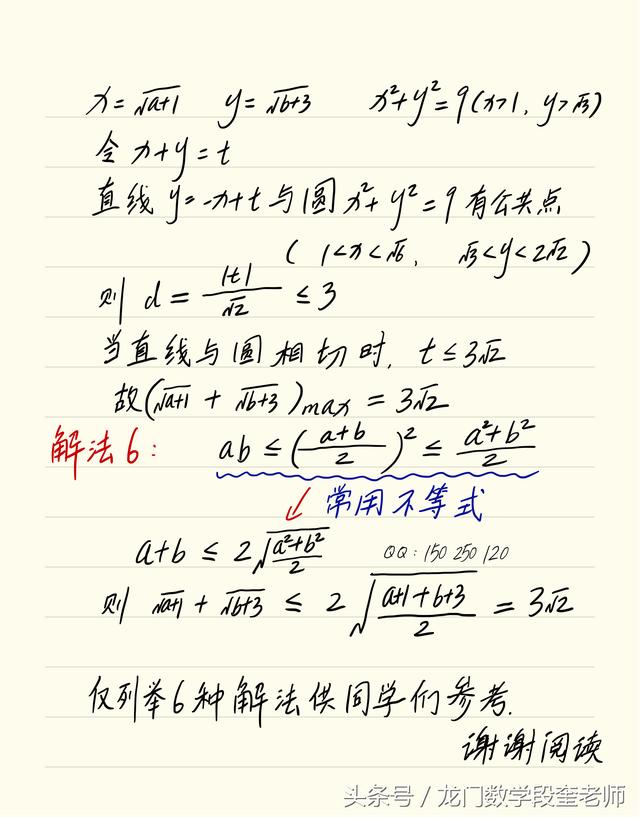 x=√(a+1) y=√(b+3) x²+y²=9(x>1, y>√3)
令 x+y=t
直线 y=-x+t 与圆 x²+y²=9 有公共点
(1<x<√6, √3<y<2√2)
则 d=|t|/√2 ≤3
当直线与圆相切时, t≤3√2
故(√(a+1) + √(b+3))max=3√2
解法6: ab≤((a+b)/2)²≤(a²+b²)/2
常用不等式
a+b≤2√((a²+b²)/2) QQ:150 250 120
则 √(a+1) + √(b+3) ≤ 2√((a+1+b+3)/2) = 3√2
仅列举6种解法供同学们参考.
谢谢阅读
头条号/龙门数学段奎老师